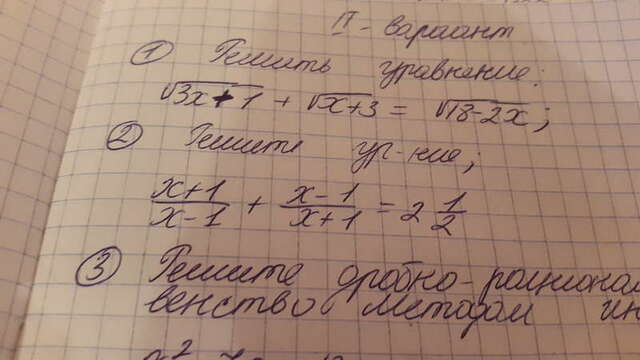 II - вариант
① Решить уравнение:
√3x+1 + √x+3 = √18-2x;
② Решите ур-ние;
x+1/x-1 + x-1/x+1 = 2 1/2
③ Решите дробно-рационал
венство методом ин